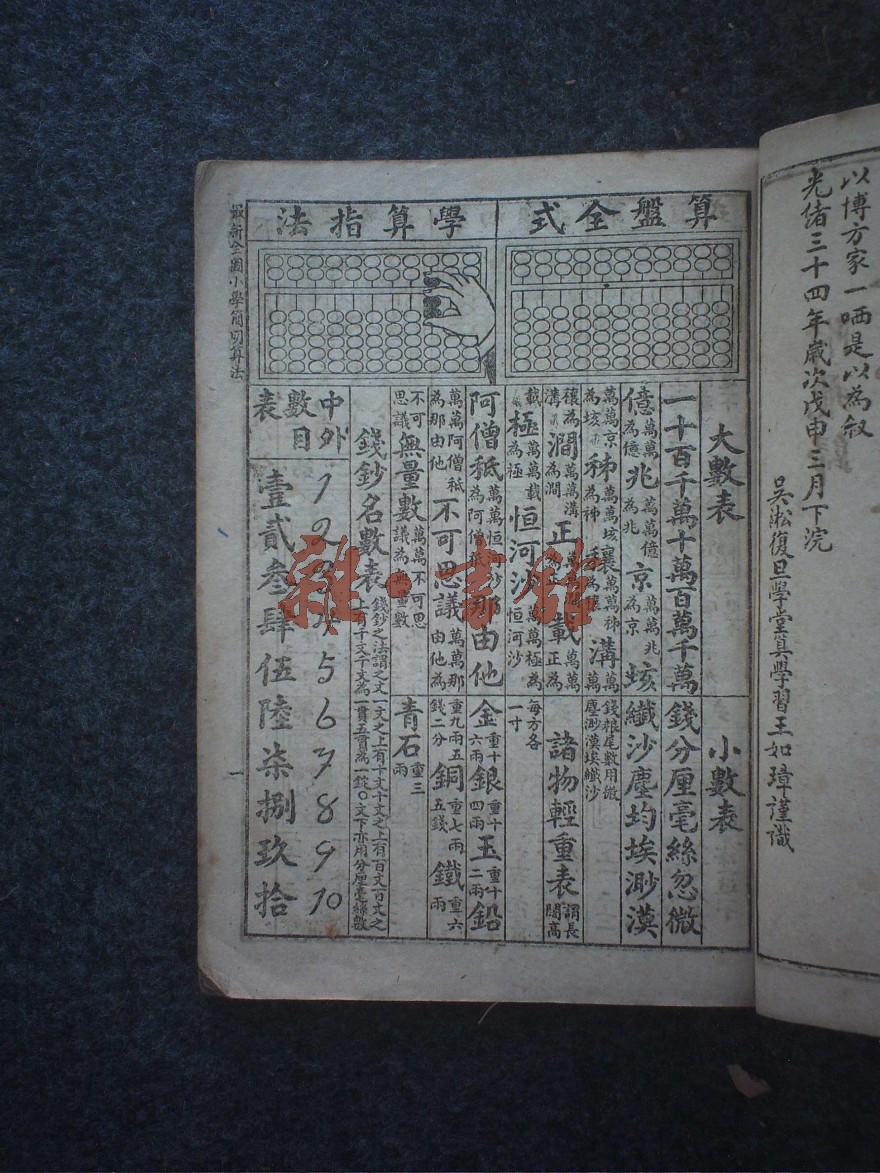 以博方家一哂是以為叙
光緒三十四年歲次戊申三月下浣
吳淞復旦學堂真學習王如璋謹識
算盤全式
學算指法
大數表
一十百千萬十萬百萬千萬
億萬萬為億兆萬萬億為兆京萬萬兆為京垓
萬萬京為垓秭萬萬垓為秭穰萬萬秭為穰溝萬萬
穰為溝澗萬萬溝為澗正萬萬澗為正載萬萬正為
載極萬萬載為極恒河沙萬萬極為恒河沙
阿僧秪萬萬恒河沙為阿僧秪那由他
萬萬阿僧秪為那由他不可思議萬萬那由他為
不可思議無量數萬萬不可思議為無量數
小數表
錢分厘毫絲忽微
纖沙塵圴埃渺漠
錢糧尾數用微塵渺漠埃纖沙
諸物輕重表謂長闊高
每方各一寸
金重十六兩銀重十四兩玉重十二兩鉛
重九兩五錢二分銅重七兩五錢鐵重六兩
青石重三兩
錢鈔名數表錢鈔之法謂之文
一文之上有十文十文之上有百文百文之
上有千文千文為一貫五貫為一錠〇文下亦用分厘毫絲數
中外數目表
1 2 3 4 5 6 7 8 9 10
壹貳叁肆伍陸柒捌玖拾
最新全圖小學簡明算法
一
雜·書館